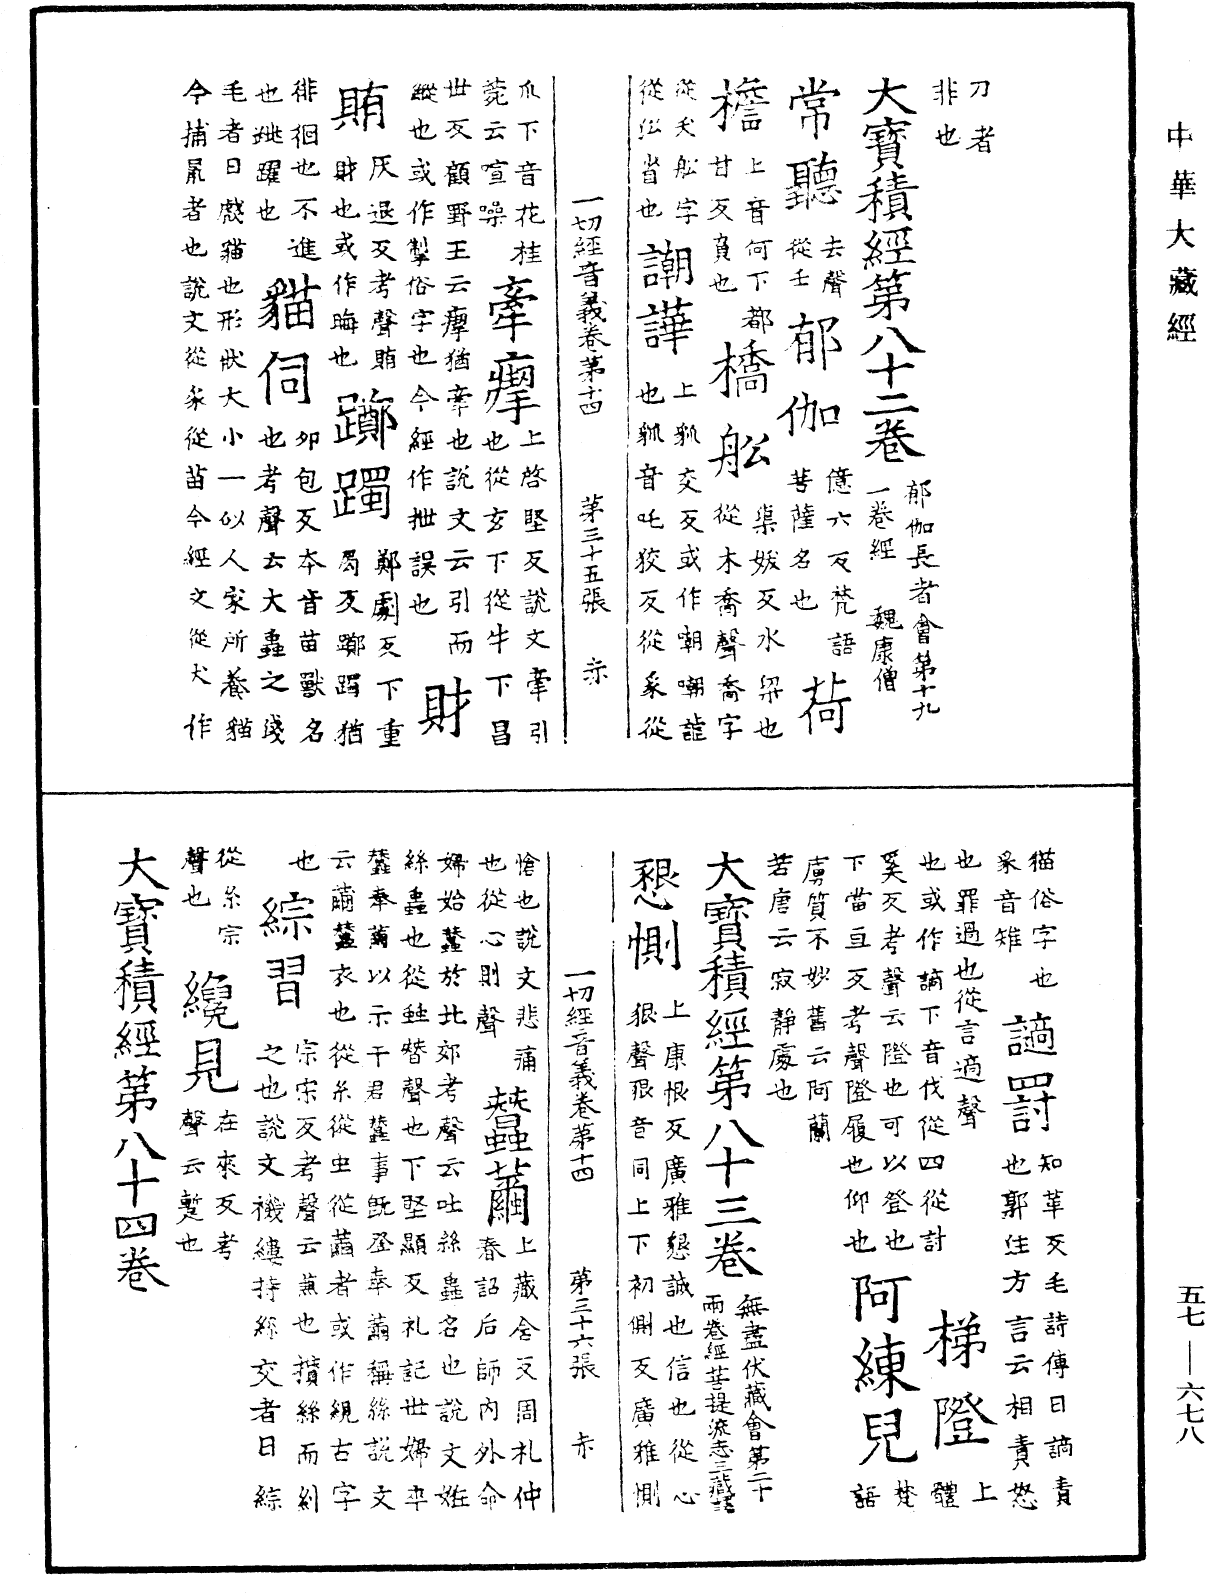 中華大藏經
刀者
非也
大寶積經第八十二卷 郁伽長者會第十九
一卷經 魏康僧
常聽 去聲
從壬 郁伽 億六反梵語
菩薩名也 荷
擔 上音何下都
甘反負也 橋舩 渠妖反水梁也
從木喬聲喬字
從夭舩字
從㕣省也 謿譁 上㺒交反或作嘲啁誼
也㺒音吒狡反從豸從
一切經音義卷第十四 第三十五張 赤
爪下音花桂
苑云喧噪 牽瘳 上啓堅反說文牽引
也從玄下從牛下昌
世反顧野王云瘳猶牽也說文云引而
縱也或作掣俗字也今經作拙誤也 財
賄 灰退反考聲賄
財也或作晦也 躑躅 鄭劇反下重
局反躑躅猶
徘徊也不進
也跳躍也 貓伺 夘包反本音苗獸名
也考聲云大蟲之淺
毛者曰虥貓也形狀大小一似人家所養貓
今捕鼠者也說文從豸從苗今經文從犬作
猫俗字也
豸音雉 讁罸 知革反毛詩傳曰讁責
也郭住方言云相責怒
也罪過也從言適聲
也或作謫下音伐從四從討 梯隥 上體
奚反考聲云隥也可以登也
下當亘反考聲隥履也仰也 阿練兒 梵語
虜質不妙舊云阿蘭
若唐云寂靜處也
大寶積經第八十三卷 無盡伏藏會第二十
兩卷經菩提流志三藏譯
懇惻 上康恨反廣雅懇誠也信也從心
狠聲狠音同上下初側反廣雅惻
一切經音義卷第十四 第三十六張 赤
愴也說文悲痛
也從心則聲 蠶繭 上藏含反周礼仲
春詔后師內外命
婦始蠶於北郊考聲云吐絲蟲名也說文姙
絲蟲也從䖵朁聲也下堅顯反礼記世婦卒
蠶奉繭以示于君蠶事旣登奉繭稱絲說文
云繭蠶衣也從糸從虫從繭者或作絸古字
也 綜習 宗宋反考聲云兼也攢絲而紃
之也說文機縷持絲交者曰綜
從糸宗
聲也 纔見 在來反考
聲云蹔也
大寶積經第八十四卷
五七—六七八